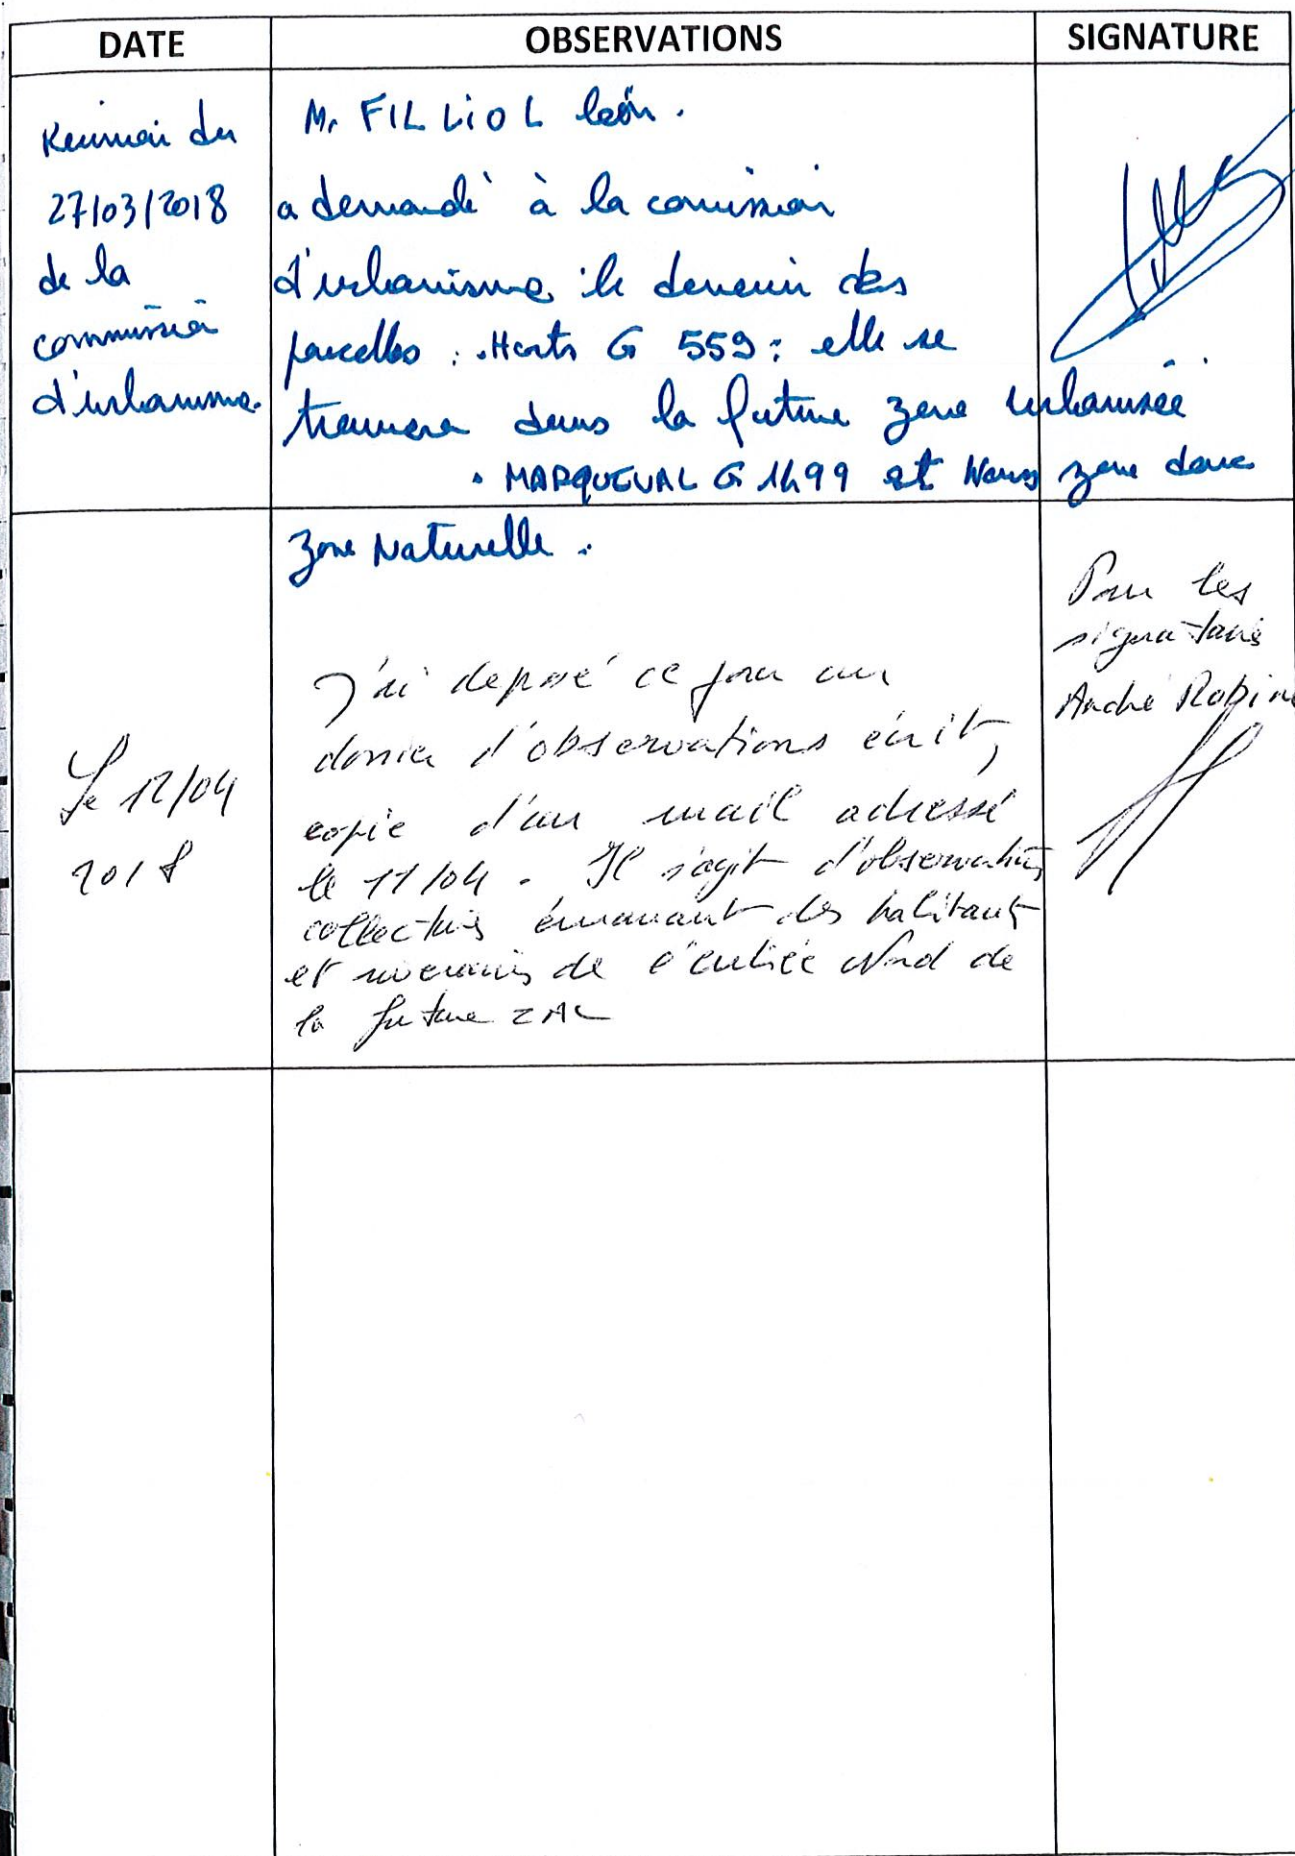 DATE
OBSERVATIONS
SIGNATURE
Réunion du
27/03/2018
de la
commission
d'urbanisme.
Mr FILLIOL Léon.
a demandé à la commission
d'urbanisme le devenir des
parcelles : . Horts G 559 : elle se
trouvera dans la future zone urbanisée
. MARQUEVAL G 1499 est hors zone donc
Zone Naturelle.
Le 12/04
2018
J'ai déposé ce jour un
dossier d'observations écrit,
copie d'un mail adressé
le 11/04. Il s'agit d'observations
collectives émanant des habitants
et riverains de l'entrée Nord de
la future ZAC
Pour les
signataires
André Robin